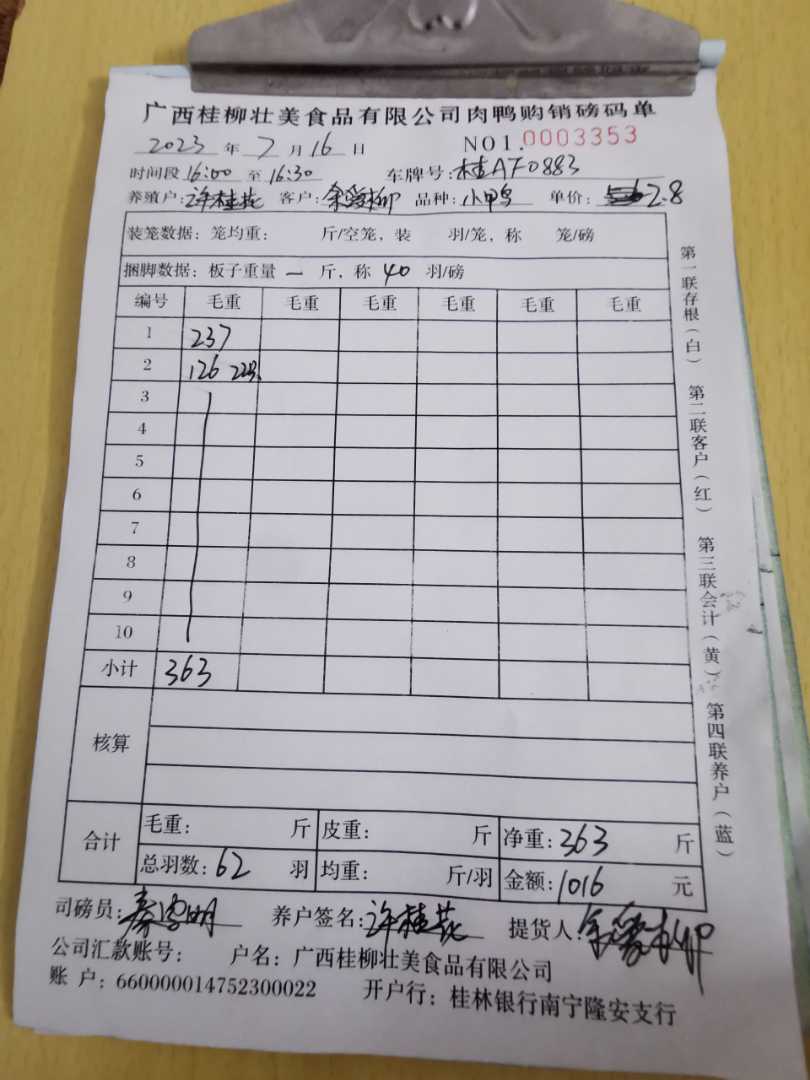 广西桂柳壮美食品有限公司肉鸭购销磅码单
2023 年 7 月 16 日 NO1.0003353
时间段 16:00 至 16:30 车牌号: 桂AF0883
养殖户: 许桂花 客户: 余爱柳 品种: 小甲鸟 单价: 2.8
装笼数据: 笼均重: 斤/空笼, 装 羽/笼, 称 笼/磅
捆脚数据: 板子重量 一 斤, 称 40 羽/磅
编号 毛重 毛重 毛重 毛重 毛重 毛重
1 237
2 126 22只
3
4
5
6
7
8
9
10
小计 363
核算
合计 毛重: 斤 皮重: 斤 净重: 363 斤
总羽数: 62 羽 均重: 斤/羽 金额: 1016 元
司磅员: 秦 明 养户签名: 许桂花 提货人: 余爱柳
公司汇款账号: 户名: 广西桂柳壮美食品有限公司
账 户: 660000014752300022 开户行: 桂林银行南宁隆安支行
第一联存根(白) 第二联客户(红) 第三联会计(黄) 第四联养户(蓝)